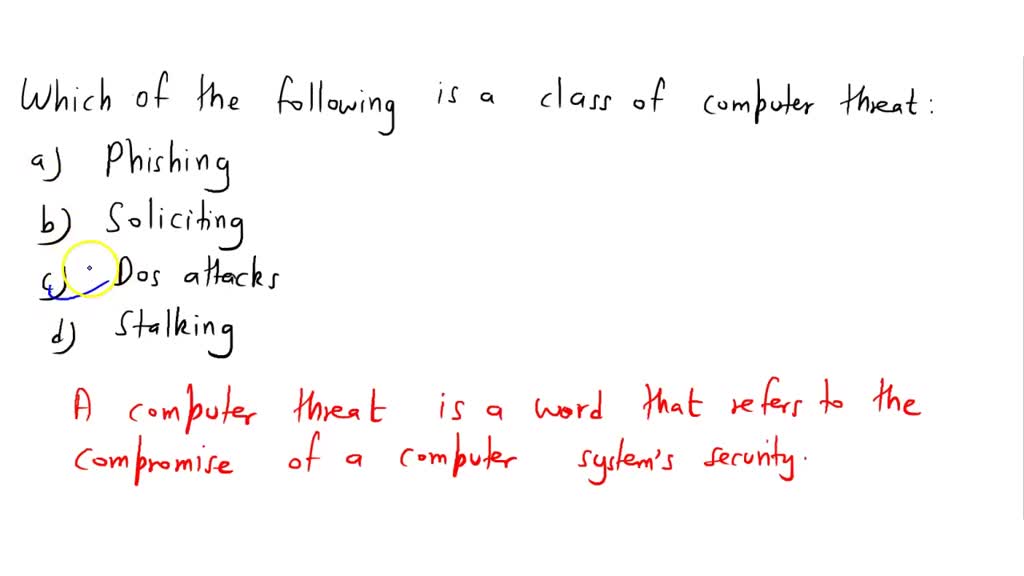 Which of the following is a class of computer threat:
a) Phishing
b) Soliciting
c) Dos attacks
d) Stalking
A computer threat is a word that refers to the
compromise of a computer system's security.